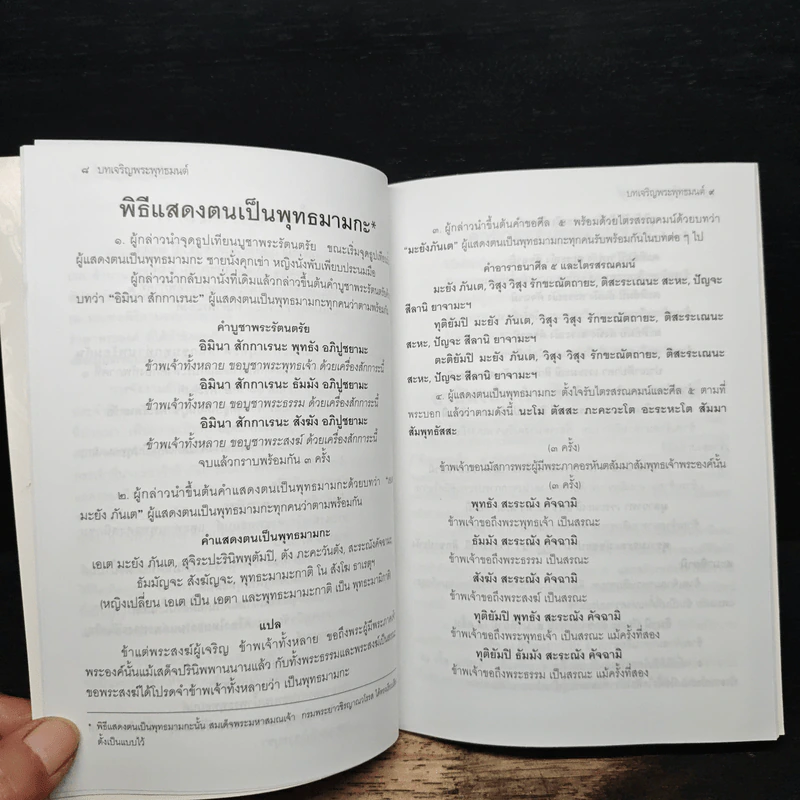 ๘ บทเจริญพระพุทธมนต์
พิธีแสดงตนเป็นพุทธมามกะ*
๑. ผู้กล่าวนำจุดธูปเทียนบูชาพระรัตนตรัย ขณะเริ่มจุดธูปเทียน
ผู้แสดงตนเป็นพุทธมามกะ ชายนั่งคุกเข่า หญิงนั่งพับเพียบประนมมือ
ผู้กล่าวนำกลับมานั่งที่เดิมแล้วกล่าวขึ้นต้นคำบูชาพระรัตนตรัย
บทว่า “อิมินา สักกาเรนะ” ผู้แสดงตนเป็นพุทธมามกะทุกคนว่าตามพร้อมกัน
คำบูชาพระรัตนตรัย
อิมินา สักกาเรนะ พุทธัง อภิปูชยามะ
ข้าพเจ้าทั้งหลาย ขอบูชาพระพุทธเจ้า ด้วยเครื่องสักการะนี้
อิมินา สักกาเรนะ ธัมมัง อภิปูชยามะ
ข้าพเจ้าทั้งหลาย ขอบูชาพระธรรม ด้วยเครื่องสักการะนี้
อิมินา สักกาเรนะ สังฆัง อภิปูชยามะ
ข้าพเจ้าทั้งหลาย ขอบูชาพระสงฆ์ ด้วยเครื่องสักการะนี้
จบแล้วกราบพร้อมกัน ๓ ครั้ง
๒. ผู้กล่าวนำขึ้นต้นคำแสดงตนเป็นพุทธมามกะด้วยบทว่า
มะยัง ภันเต” ผู้แสดงตนเป็นพุทธมามกะทุกคนว่าตามพร้อมกัน
คำแสดงตนเป็นพุทธมามกะ
เอเต มะยัง ภันเต, สุจิระปะรินิพพุตัมปิ, ตัง ภะคะวันตัง, สะระณังคัจฉามะ
ธัมมัญจะ สังฆัญจะ, พุทธะมามะกาติ โน สังโฆ ธาเรตุฯ
(หญิงเปลี่ยน เอเต เป็น เอตา และพุทธะมามะกาติ เป็น พุทธะมามิกาติ)
แปล
ข้าแต่พระสงฆ์ผู้เจริญ ข้าพเจ้าทั้งหลาย ขอถึงพระผู้มีพระภาคเจ้า
พระองค์นั้นแม้เสด็จปรินิพพานนานแล้ว กับทั้งพระธรรมและพระสงฆ์เป็นสรณะ
ขอพระสงฆ์ได้โปรดจำข้าพเจ้าทั้งหลายว่า เป็นพุทธมามกะ
* พิธีแสดงตนเป็นพุทธมามกะนั้น สมเด็จพระมหาสมณเจ้า กรมพระยาวชิรญาณวโรรส
ตั้งเป็นแบบไว้
บทเจริญพระพุทธมนต์ ๙
๓. ผู้กล่าวนำขึ้นต้นคำขอศีล ๕ พร้อมด้วยไตรสรณคมน์ด้วยบทว่า
“มะยังภันเต” ผู้แสดงตนเป็นพุทธมามกะทุกคนรับพร้อมกันในบทต่อ ๆ ไป
คำอาราธนาศีล ๕ และไตรสรณคมน์
มะยัง ภันเต, วิสุง วิสุง รักขะณัตถายะ, ติสะระเณนะ สะหะ, ปัญจะ
สีลานิ ยาจามะฯ
ทุติยัมปิ มะยัง ภันเต, วิสุง วิสุง รักขะณัตถายะ, ติสะระเณนะ
สะหะ, ปัญจะ สีลานิ ยาจามะฯ
ตะติยัมปิ มะยัง ภันเต, วิสุง วิสุง รักขะณัตถายะ, ติสะระเณนะ
สะหะ, ปัญจะ สีลานิ ยาจามะฯ
๔. ผู้แสดงตนเป็นพุทธมามกะ ตั้งใจรับไตรสรณคมน์และศีล ๕ ตามที่
พระบอก แล้วว่าตามดังนี้ นะโม ตัสสะ ภะคะวะโต อะระหะโต สัมมา
สัมพุทธัสสะ
(๓ ครั้ง)
ข้าพเจ้าขอนมัสการพระผู้มีพระภาคอรหันตสัมมาสัมพุทธเจ้าพระองค์นั้น
(๓ ครั้ง)
พุทธัง สะระณัง คัจฉามิ
ข้าพเจ้าขอถึงพระพุทธเจ้า เป็นสรณะ
ธัมมัง สะระณัง คัจฉามิ
ข้าพเจ้าขอถึงพระธรรม เป็นสรณะ
สังฆัง สะระณัง คัจฉามิ
ข้าพเจ้าขอถึงพระสงฆ์ เป็นสรณะ
ทุติยัมปิ พุทธัง สะระณัง คัจฉามิ
ข้าพเจ้าขอถึงพระพุทธเจ้า เป็นสรณะ แม้ครั้งที่สอง
ทุติยัมปิ ธัมมัง สะระณัง คัจฉามิ
ข้าพเจ้าขอถึงพระธรรม เป็นสรณะ แม้ครั้งที่สอง